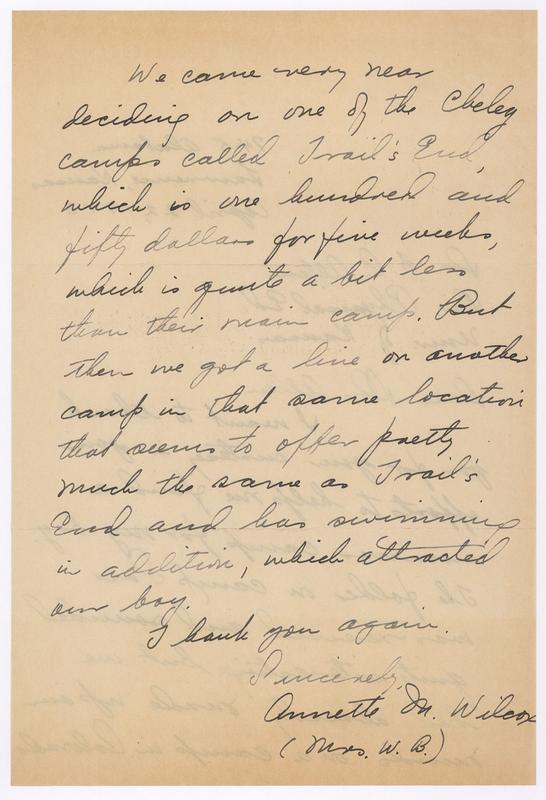 We came very near
deciding on one of the Cheley
camps called Trail's End,
which is one hundred and
fifty dollars for five weeks,
which is quite a bit less
than their main camp. But
then we got a line on another
camp in that same location
that seems to offer pretty
much the same as Trail's
End and has swimming
in addition, which attracted
our boy.
Thank you again.
Sincerely,
Annette M. Wilcox
(Mrs. W. B.)